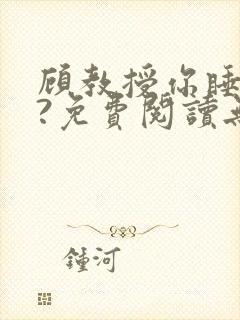 顾教授你睡
?免費閱讀
鍾河